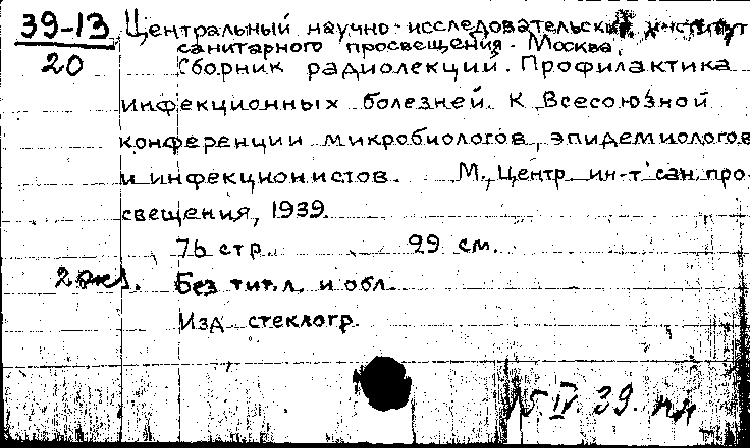 39-13 Центральный научно-исследовательский институт
20 санитарного просвещения. Москва.
Сборник радиолекций. Профилактика
инфекционных болезней. К Всесоюзной
конференции микробиологов, эпидемиологов
и инфекционистов. М., Центр. ин-т сан. про-
свещения, 1939.
76 стр. 29 см.
2 экз. Без тит. л. и обл.
Изд. стеклогр.
15 IV 39.